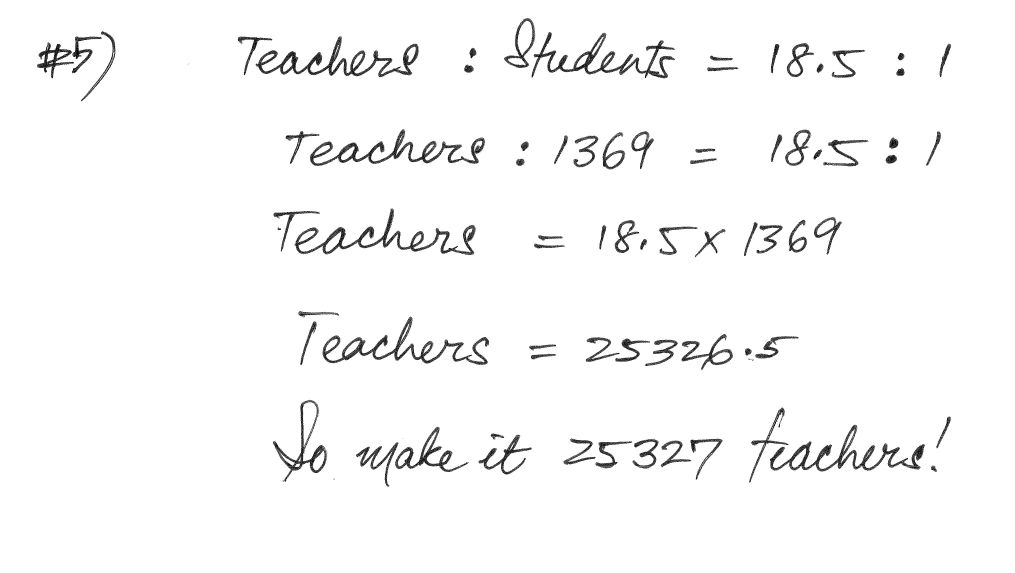 #5) Teachers : Students = 18.5 : 1
Teachers : 1369 = 18.5 : 1
Teachers = 18.5 x 1369
Teachers = 25326.5
So make it 25327 teachers!